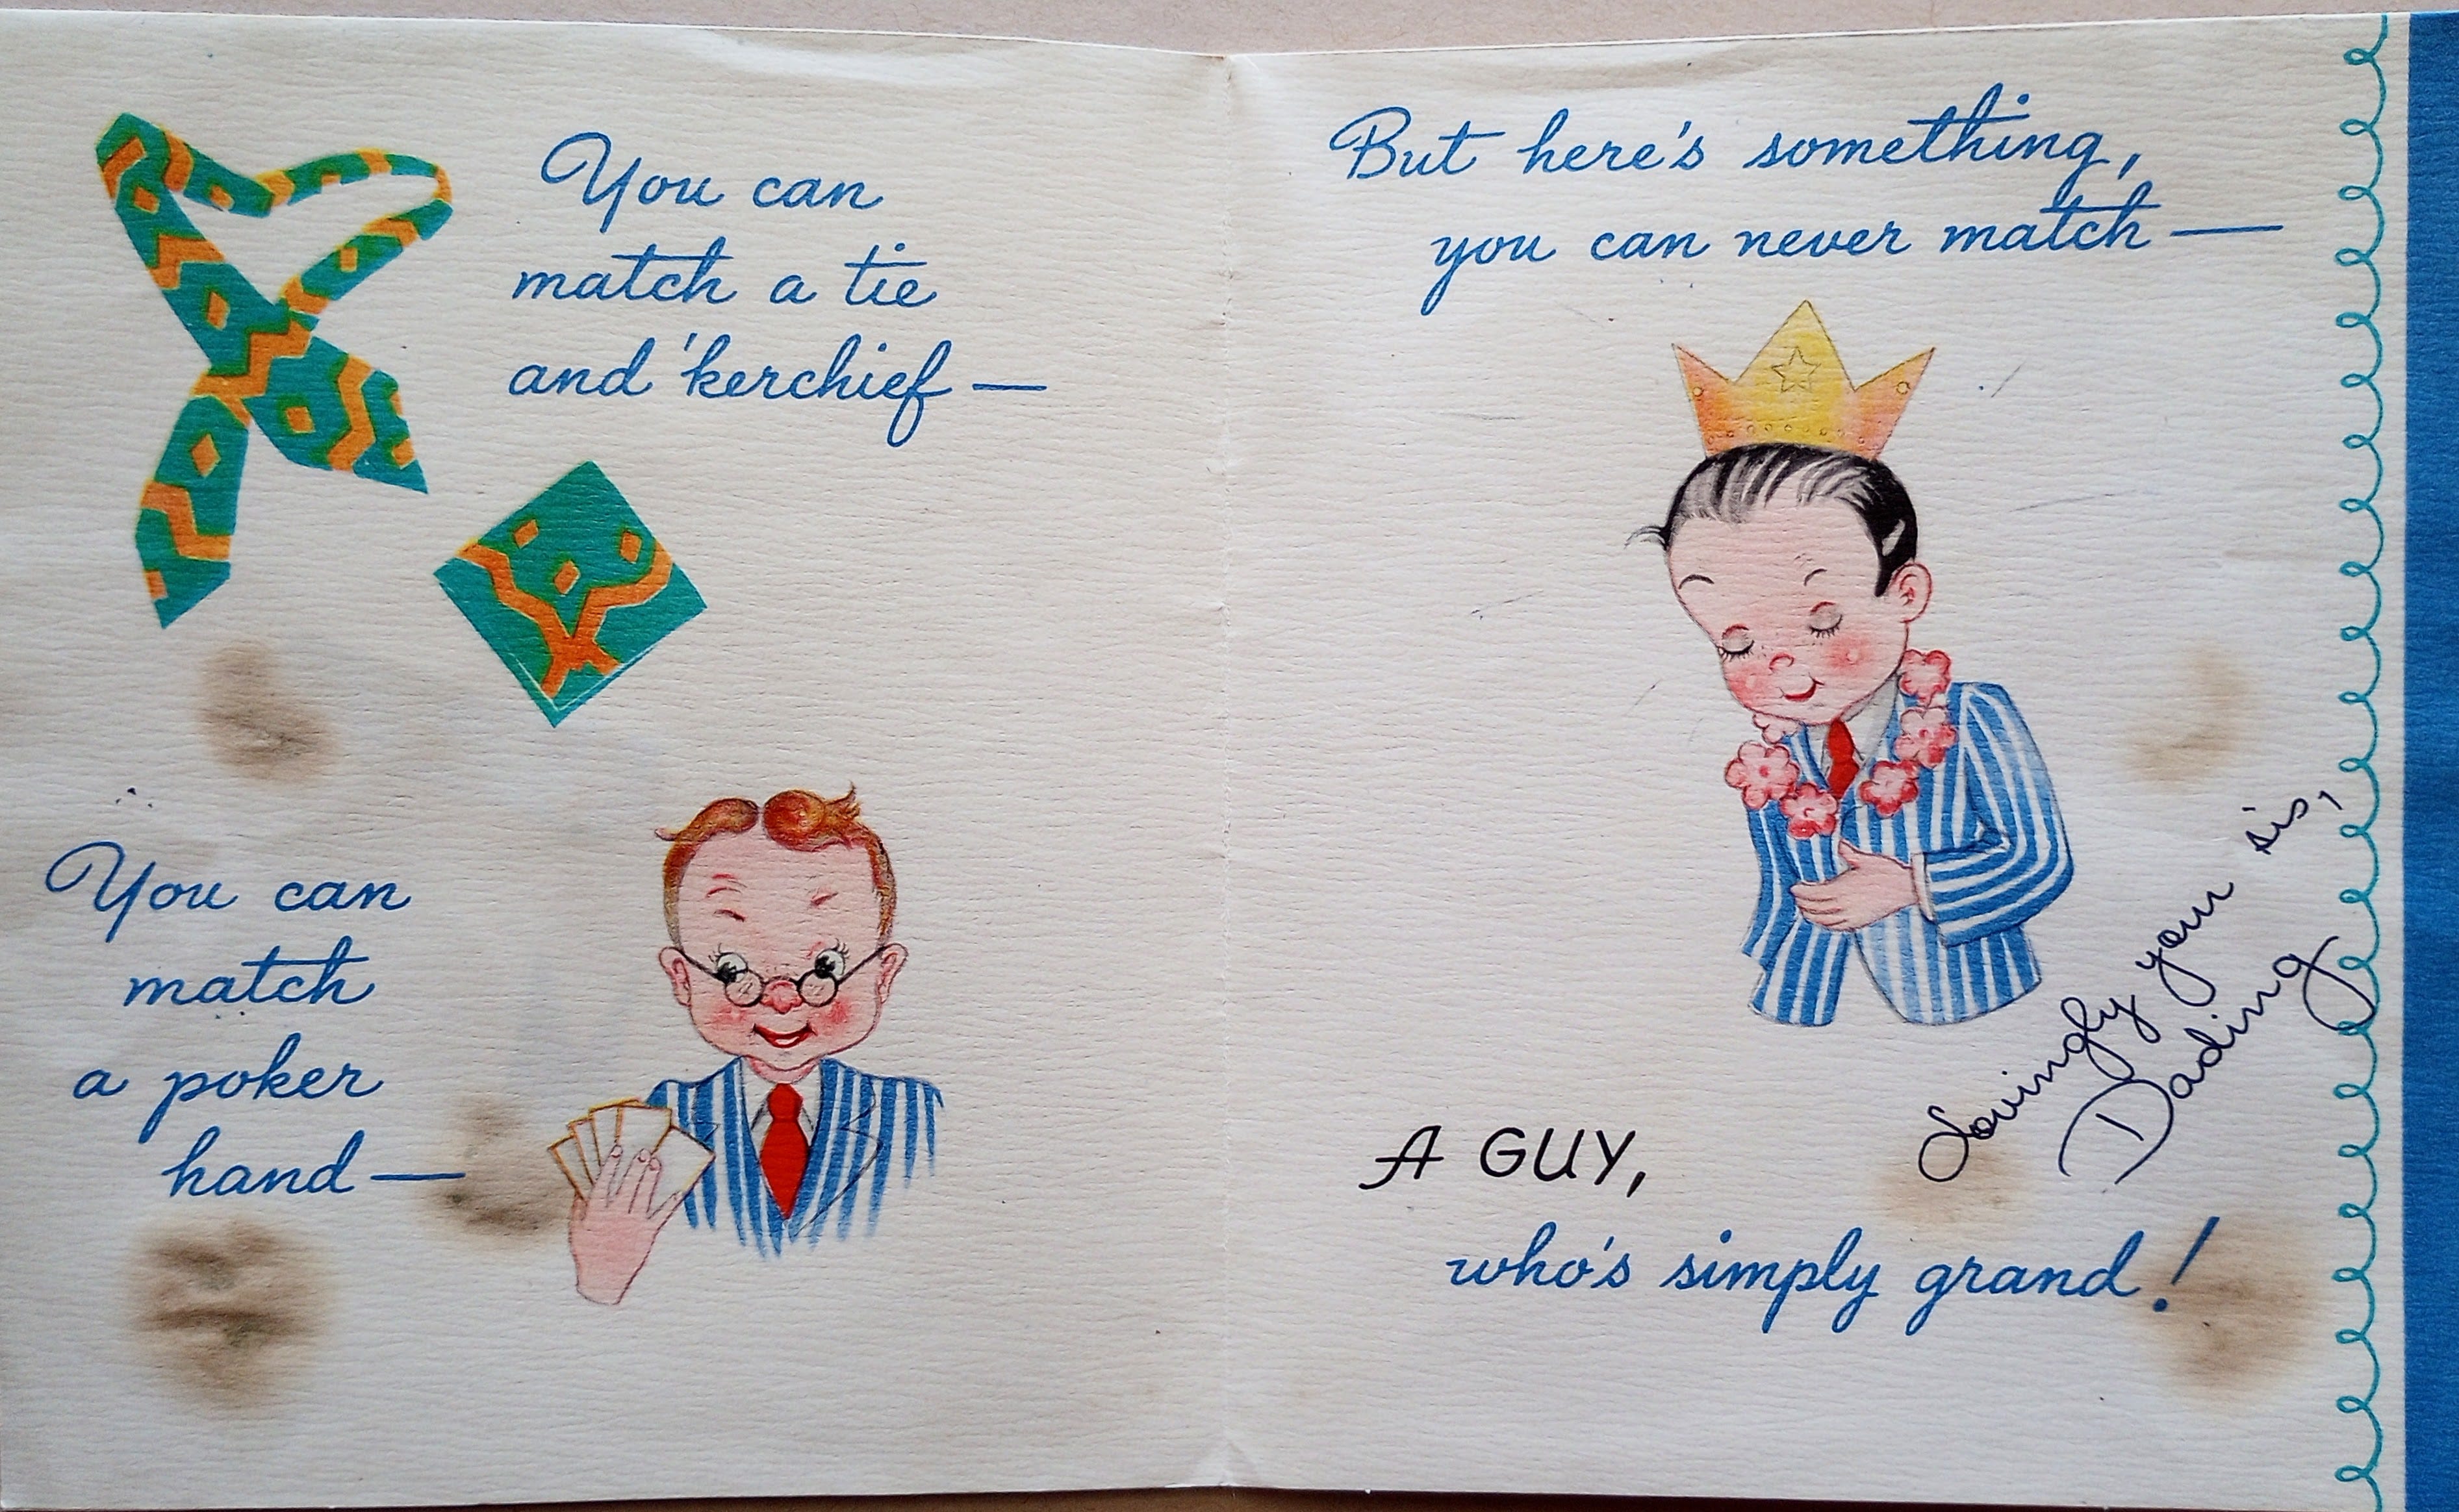 You can
match a tie
and 'kerchief —
You can
match
a poker
hand —
But here's something,
you can never match —
A GUY,
who's simply grand!
Lovingly your sis,
Dading